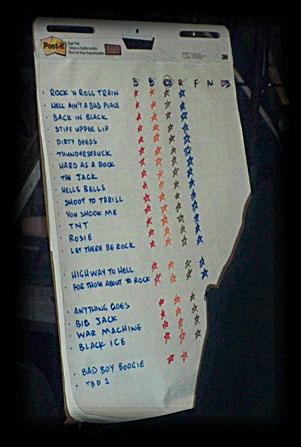 Post-it
B B R F N
ROCK 'N ROLL TRAIN
HELL AIN'T A BAD PLACE
BACK IN BLACK
STIFF UPPER LIP
DIRTY DEEDS
THUNDERSTRUCK
HARD AS A ROCK
THE JACK
HELLS BELLS
SHOOT TO THRILL
YOU SHOOK ME
TNT
ROSIE
LET THERE BE ROCK
HIGHWAY TO HELL
FOR THOSE ABOUT TO ROCK
ANYTHING GOES
BIG JACK
WAR MACHINE
BLACK ICE
BAD BOY BOOGIE
TBD 1